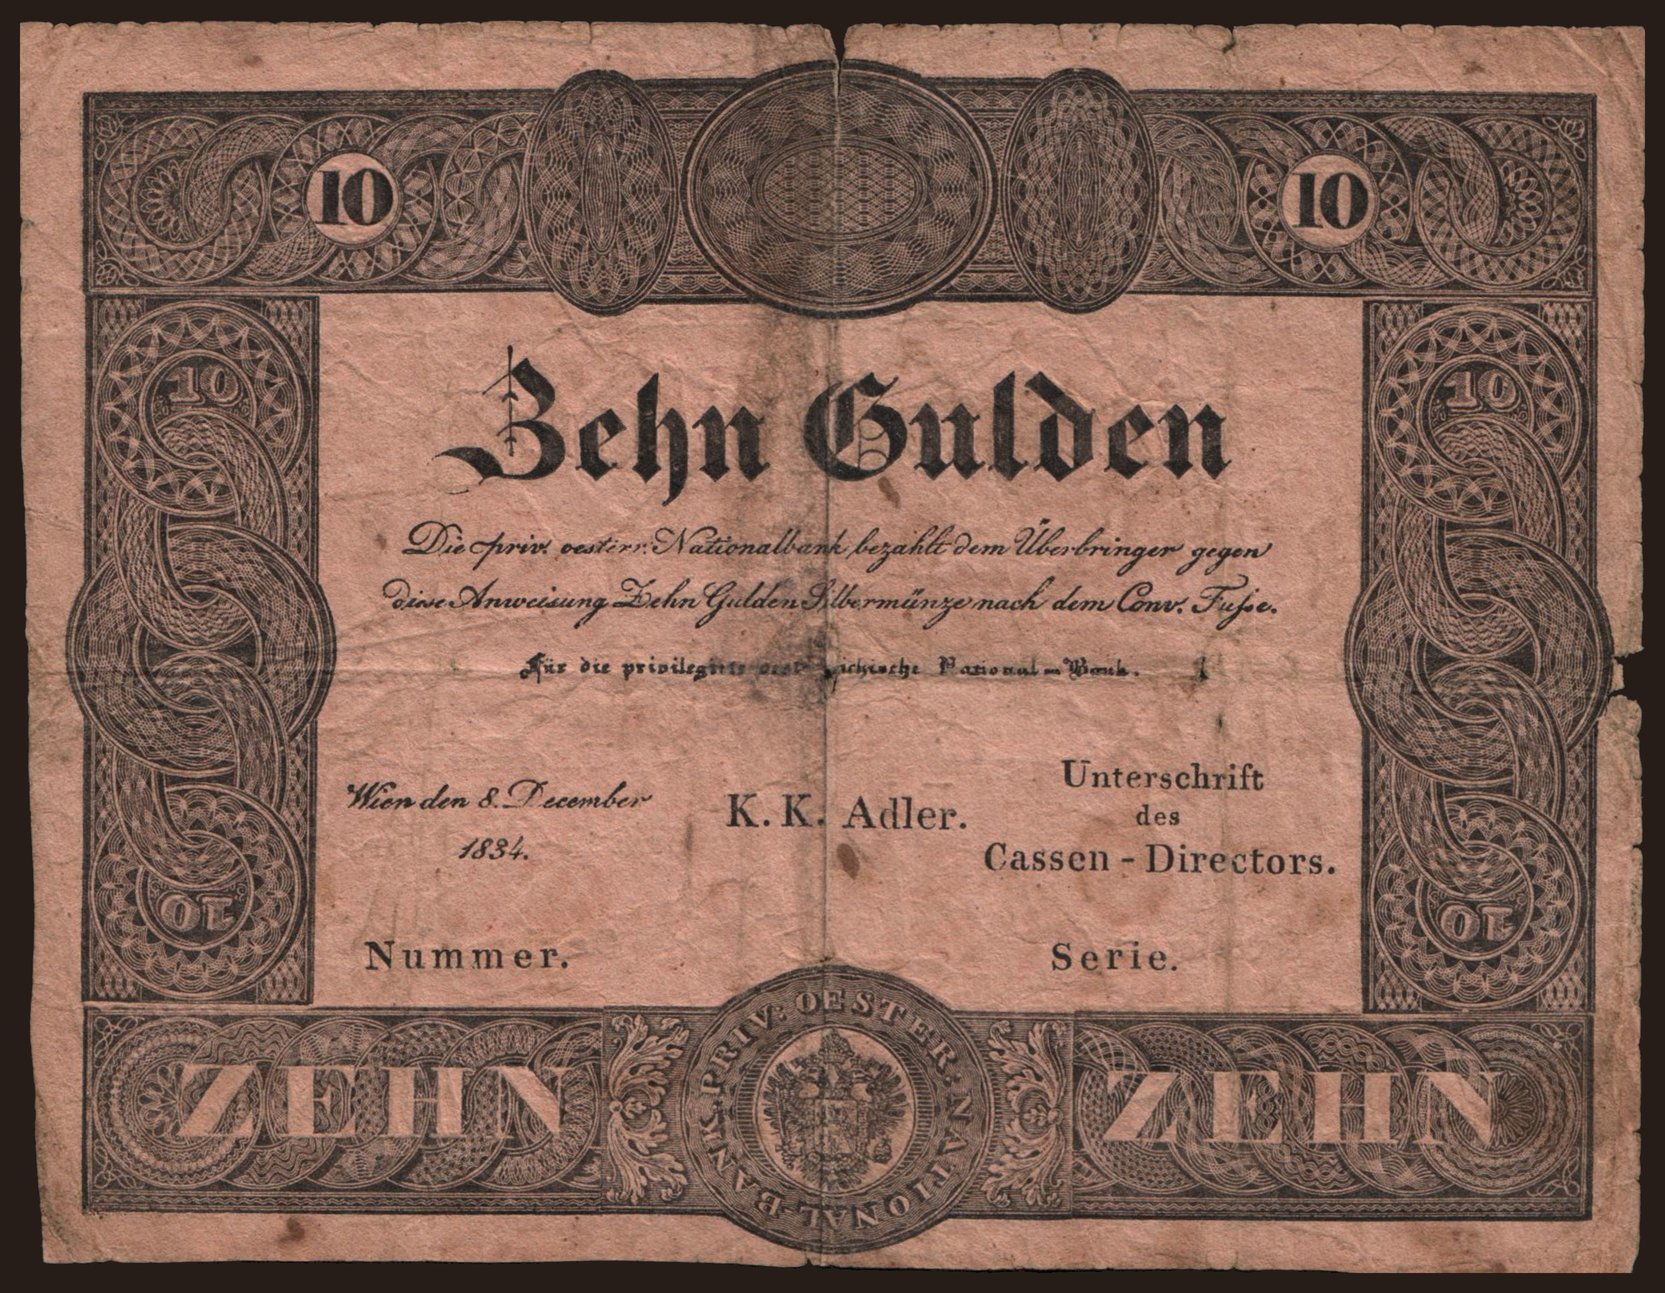 10 10
10 10
Zehn Gulden
Die priv. oesterr. Nationalbank bezahlt dem Überbringer gegen
diese Anweisung Zehn Gulden Silbermünze nach dem Conv. Fuſse.
Für die privilegirte National-Bank.
Wien den 8. December
1834.
K. K. Adler.
Unterschrift
des
Cassen-Directors.
10 10
Nummer. Serie.
ZEHN ZEHN
PRIV: OESTER: NATIONAL-BANK.